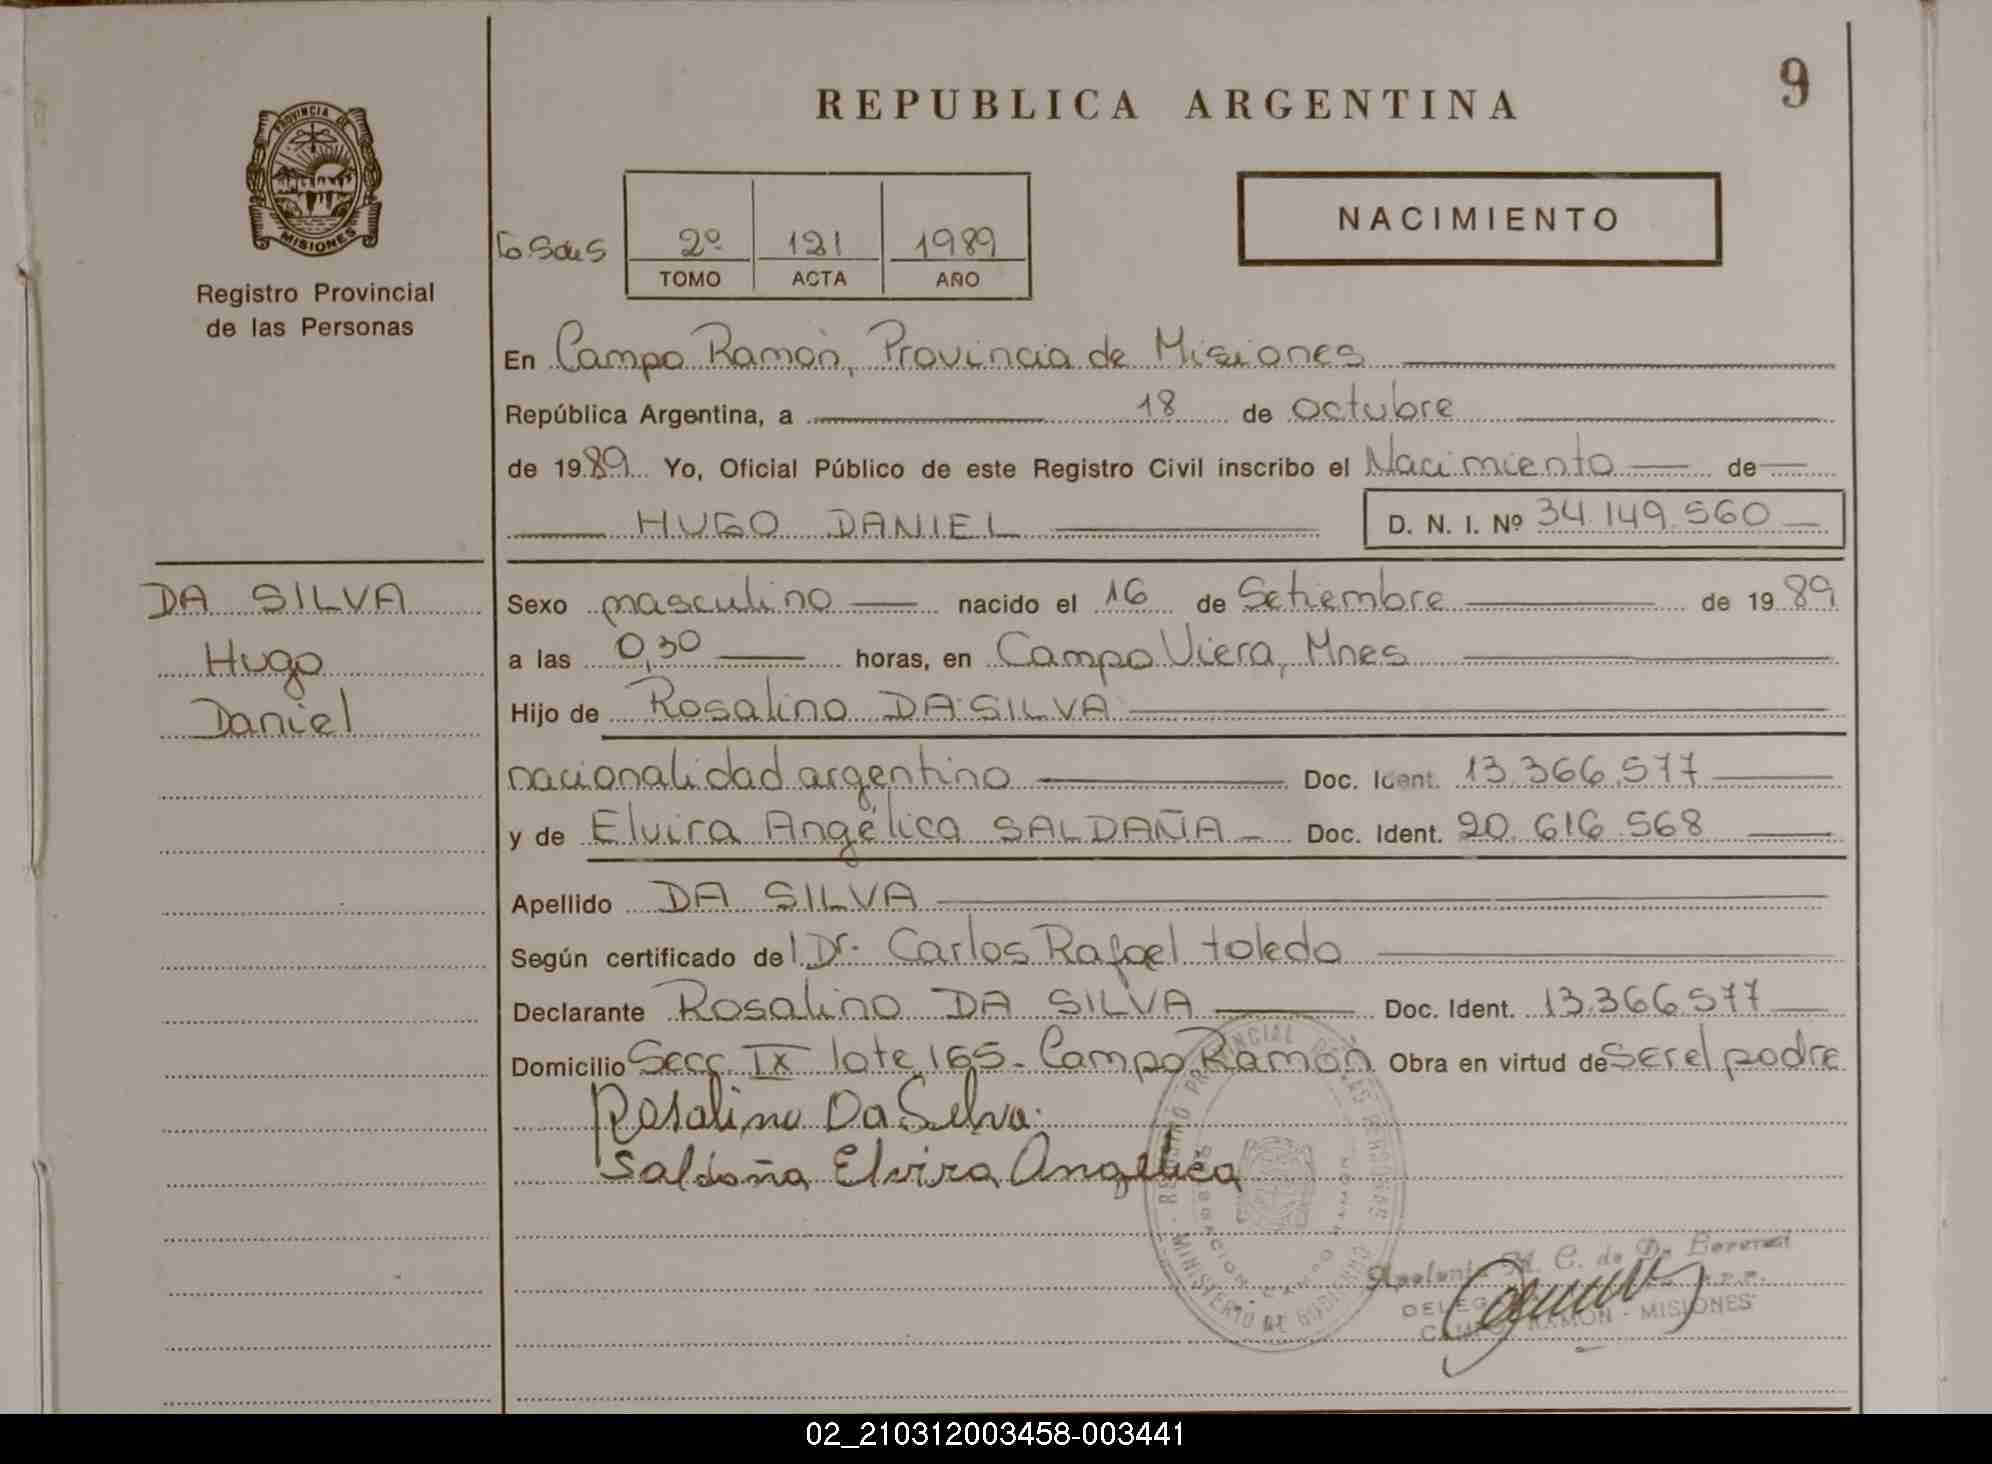 9
REPUBLICA ARGENTINA
PROVINCIA DE
MISIONES
Registro Provincial
de las Personas
2º 121 1989
TOMO ACTA AÑO
NACIMIENTO
En Campo Ramón, Provincia de Misiones
República Argentina, a 18 de octubre
de 1989 Yo, Oficial Público de este Registro Civil inscribo el Nacimiento de
HUGO DANIEL D. N. I. Nº 34.149.560
DA SILVA
Hugo
Daniel
Sexo masculino nacido el 16 de Setiembre de 1989
a las 0,30 horas, en Campo Viera, Mnes
Hijo de Rosalino DA SILVA
nacionalidad argentino Doc. Ident. 13.366.577
y de Elvira Angélica SALDAÑA Doc. Ident. 20.616.568
Apellido DA SILVA
Según certificado del Dr. Carlos Rafael toledo
Declarante Rosalino DA SILVA Doc. Ident. 13.366.577
Domicilio Secc IX lote 165 - Campo Ramón Obra en virtud de ser el padre
Rosalino Da Silva
Saldaña Elvira Angelica
MINISTERIO DE GOBIERNO
RAMON - MISIONES
02_210312003458-003441